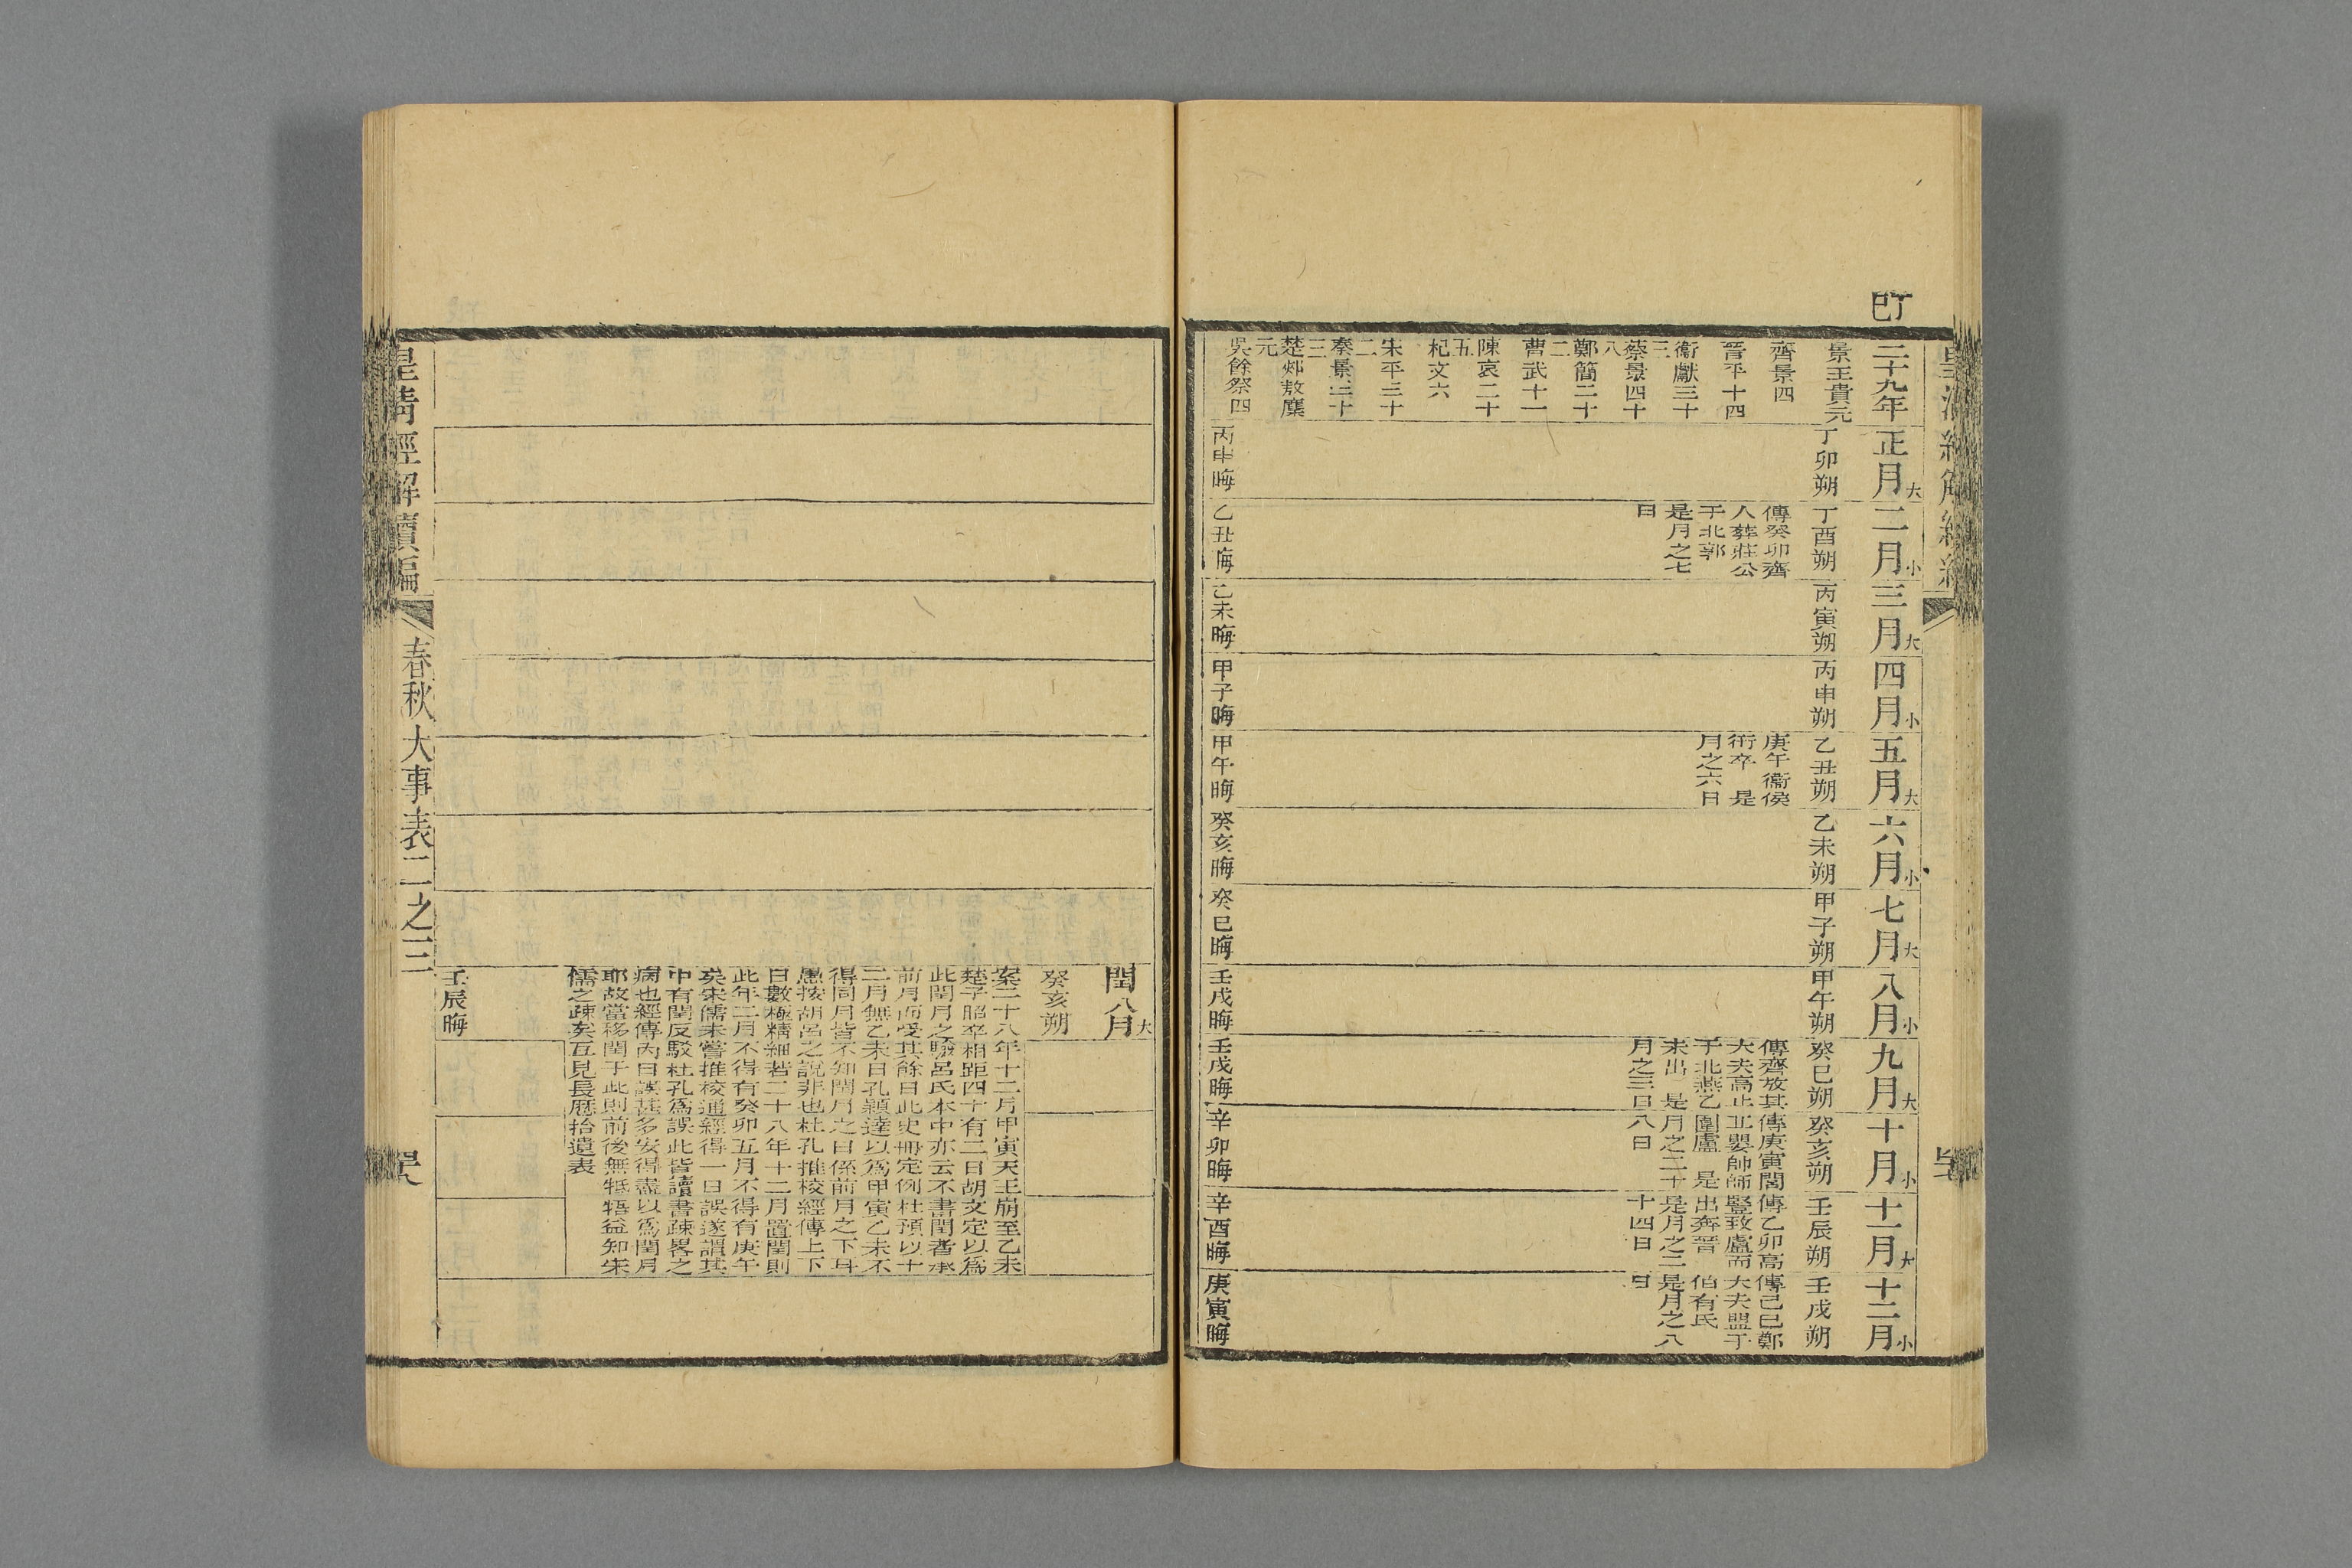 丁巳
二十九年
景王貴元
齊景四
晉平十四
衞獻三十
三
蔡景四十
八
鄭簡二十
二
曹武十一
陳哀二十
五
杞文六
宋平三十
二
秦景三十
三
楚郟敖麇
元
吳餘祭四
正月大
丁卯朔
丙申晦
二月小
丁酉朔
傳癸卯齊
人葬莊公
于北郭
是月之七
日
乙丑晦
三月大
丙寅朔
乙未晦
四月小
丙申朔
甲子晦
五月大
乙丑朔
庚午衞侯
衎卒 是
月之六日
甲午晦
六月小
乙未朔
癸亥晦
七月大
甲子朔
癸巳晦
八月小
甲午朔
壬戌晦
九月大
癸巳朔
傳齊放其
大夫高止
于北燕乙
未出 是
月之三日
壬戌晦
十月小
癸亥朔
傳庚寅閭
丘嬰帥師
圍盧 是
月之二十
八日
辛卯晦
十一月大
壬辰朔
傳乙卯高
豎致盧而
出奔晉
是月之二
十四日
辛酉晦
十二月小
壬戌朔
傳己巳鄭
大夫盟于
伯有氏
是月之八
日
庚寅晦
閏八月大
癸亥朔
案二十八年十二月甲寅天王崩至乙未
楚子昭卒相距四十有二日胡文定以爲
此閏月之驗呂氏本中亦云不書閏者承
前月而受其餘日此史冊定例杜預以十
二月無乙未日孔穎達以爲甲寅乙未不
得同月皆不知閏月之日係前月之下耳
愚按胡呂之說非也杜孔推校經傳上下
日數極精細若二十八年十二月置閏則
此年二月不得有癸卯五月不得有庚午
矣宋儒未嘗推校通經得一日誤遂謂其
中有閏反駁杜孔爲誤此皆讀書疎畧之
病也經傳內日誤甚多安得盡以爲閏月
耶故當移閏于此則前後無牴牾益知宋
儒之疎矣互見長厯拾遺表
壬辰晦
皇清經解續編
春秋大事表二之三